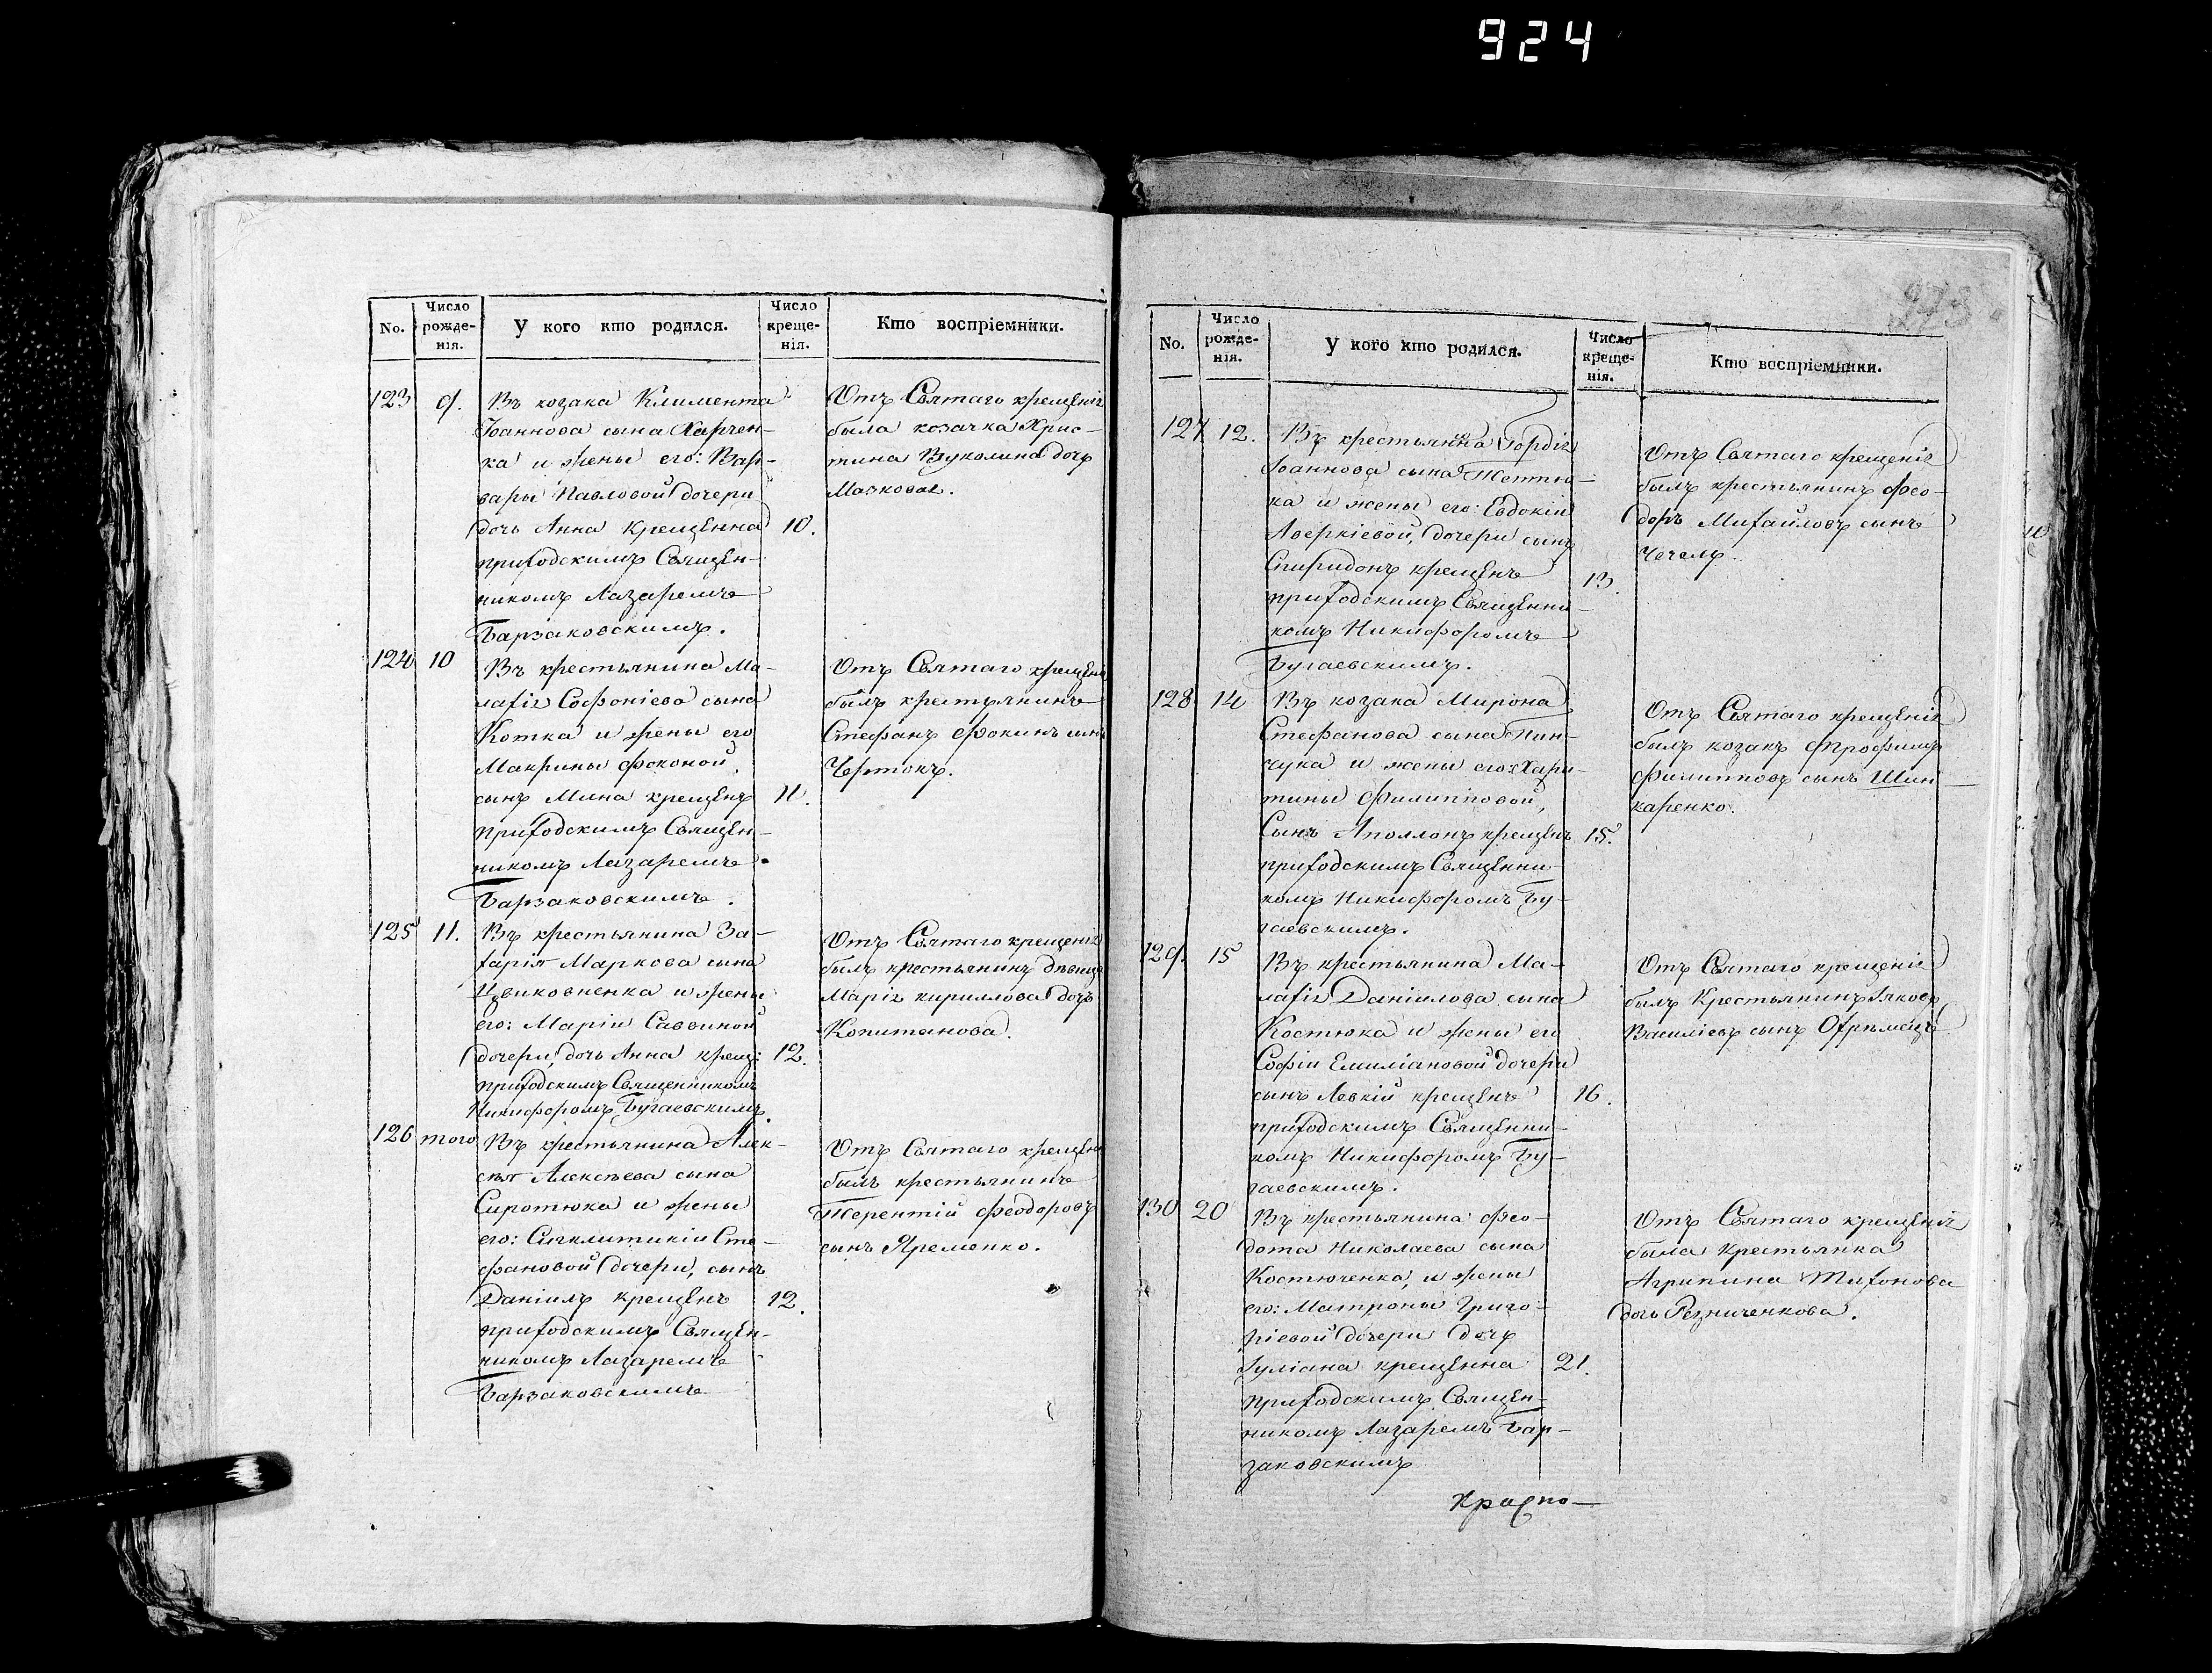 924
273
No.
Число рожде-нія.
У кого кто родился.
Число креще-нія.
Кто воспріемники.
123
9.
Въ козака Климента
Іоаннова сына Харчен-
ка и жены его: Вар-
вары Павловой дочери
дочь Анна крещенна
приходскимъ Священ-
никомъ Лазаремъ
Барзаковскимъ.
10.
Отъ Святаго крещенія
была козачка Хрис-
тина Вуколина дочь
124
10
Въ крестьянина Ма-
лахія Софоніева сына
Котка и жены его
Макрины Фокиной,
сынъ Мина крещенъ
приходскимъ Священ-
никомъ Лазаремъ
Барзаковскимъ.
11.
Отъ Святаго крещенія
былъ крестьянинъ
Стефанъ Фокинъ сынъ
Чертокъ.
125
11.
Въ крестьянина За-
харія Маркова сына
и жены
его: Маріи Саввиной
дочери, дочь Анна крещ:
приходскимъ Священникомъ
Никифоромъ Бугаевскимъ.
12.
Отъ Святаго крещенія
былъ крестьянинъ дѣвица
Марія Кириллова дочь
Копитанова.
126
того
Въ крестьянина Алек-
сѣя Алексѣева сына
Сиротюка и жены
его: Сигклитикіи Сте-
фановой дочери, сынъ
Даніилъ крещенъ
приходскимъ Священ-
никомъ Лазаремъ
Барзаковскимъ
12.
Отъ Святаго крещенія
былъ крестьянинъ
Терентій Феодоровъ
сынъ Яременко.
No.
Число рожде-нія.
У кого кто родился.
Число креще-нія.
Кто воспріемники.
127
12.
Въ крестьянина Гордія
Іоаннова сына
ка и жены его: Евдокіи
Аверкіевой, дочери сынъ
Спиридонъ крещенъ
приходскимъ Священни-
комъ Никифоромъ
Бугаевскимъ.
13.
Отъ Святаго крещенія
былъ крестьянинъ Фео-
доръ Михайловъ сынъ
Чечель.
128
14
Въ козака Мирона
Стефанова сына Пин-
чука и жены его: Хари-
тины Филипповой,
Сынъ Аполлонъ крещенъ
приходскимъ Священни-
комъ Никифоромъ Бу-
гаевскимъ.
15.
Отъ Святаго крещенія
былъ козакъ Трофимъ
Филипповъ сынъ Шин-
каренко.
129.
15
Въ крестьянина Ма-
лахія Даніилова сына
Костюка и жены его
Софіи Емиліановой дочери
сынъ Левкій крещенъ
приходскимъ Священни-
комъ Никифоромъ Бу-
гаевскимъ.
16.
Отъ Святаго крещенія
былъ Крестьянинъ Іяковъ
Василіевъ сынъ Охрѣмецъ
130
20
Въ крестьянина Фео-
дота Николаева сына
Костюченка, и жены
его: Матроны Григо-
ріевой дочери дочь
Іуліана крещенна
приходскимъ Священ-
никомъ Лазаремъ Бар-
заковскимъ
21.
Отъ Святаго крещенія
была крестьянка
Агрипина Тихонова
дочь Резниченкова.
Красно-